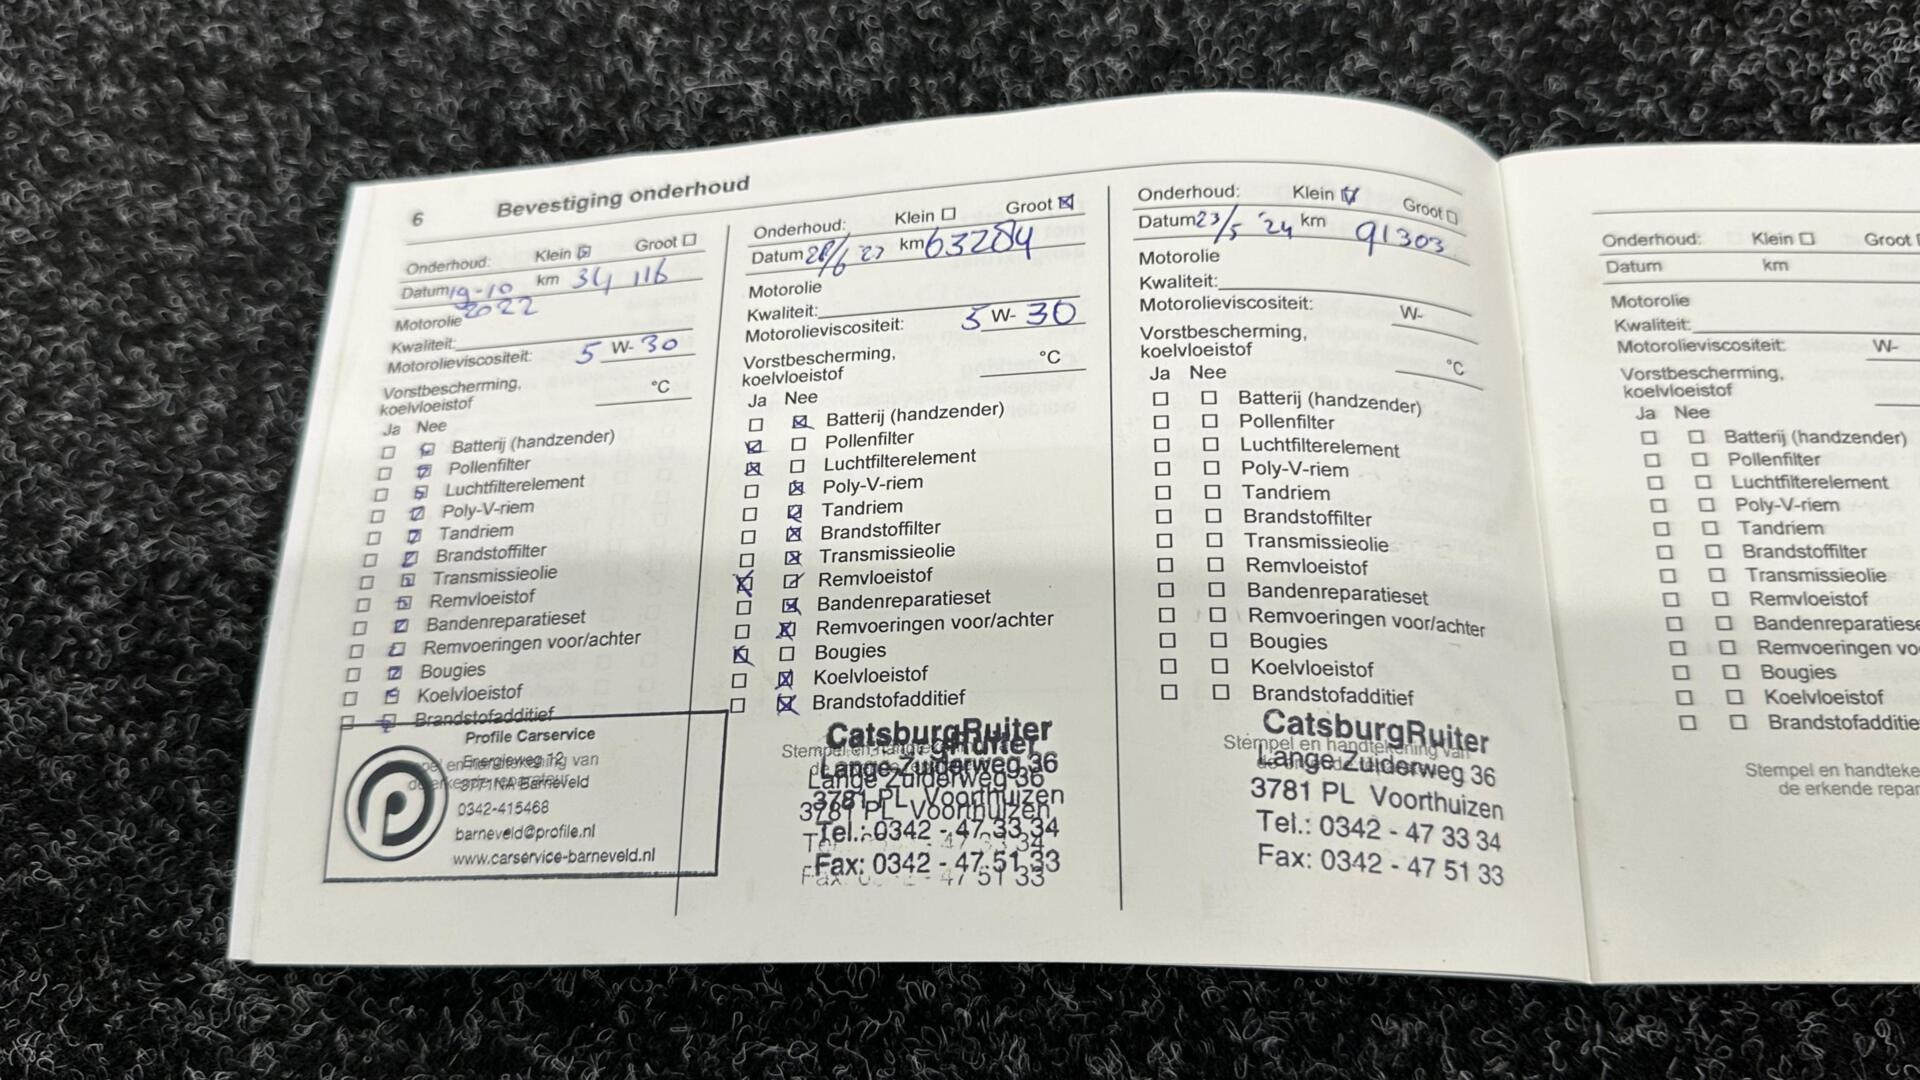 6 Bevestiging onderhoud
Onderhoud: Klein Groot
Datum 19-10 km 34 116
2022
Motorolie
Kwaliteit:
Motorolieviscositeit: 5 W- 30
Vorstbescherming,
koelvloeistof °C
Ja Nee
Batterij (handzender)
Pollenfilter
Luchtfilterelement
Poly-V-riem
Tandriem
Brandstoffilter
Transmissieolie
Remvloeistof
Bandenreparatieset
Remvoeringen voor/achter
Bougies
Koelvloeistof
Brandstofadditief
Profile Carservice
Energieweg 12
3771NA Barneveld
0342-415468
barneveld@profile.nl
www.carservice-barneveld.nl
Onderhoud: Klein Groot
Datum km 63284
Motorolie
Kwaliteit:
Motorolieviscositeit: 5 W- 30
Vorstbescherming,
koelvloeistof °C
Ja Nee
Batterij (handzender)
Pollenfilter
Luchtfilterelement
Poly-V-riem
Tandriem
Brandstoffilter
Transmissieolie
Remvloeistof
Bandenreparatieset
Remvoeringen voor/achter
Bougies
Koelvloeistof
Brandstofadditief
CatsburgRuiter
Lange Zuiderweg 36
3781 PL Voorthuizen
Tel.: 0342 - 47 33 34
Fax: 0342 - 47 51 33
Onderhoud: Klein Groot
Datum 23/5 '24 km 91303
Motorolie
Kwaliteit:
Motorolieviscositeit: W-
Vorstbescherming,
koelvloeistof °C
Ja Nee
Batterij (handzender)
Pollenfilter
Luchtfilterelement
Poly-V-riem
Tandriem
Brandstoffilter
Transmissieolie
Remvloeistof
Bandenreparatieset
Remvoeringen voor/achter
Bougies
Koelvloeistof
Brandstofadditief
CatsburgRuiter
Stempel en handtekening van
Lange Zuiderweg 36
3781 PL Voorthuizen
Tel.: 0342 - 47 33 34
Fax: 0342 - 47 51 33
Onderhoud: Klein Groot
Datum km
Motorolie
Kwaliteit:
Motorolieviscositeit: W-
Vorstbescherming,
koelvloeistof
Ja Nee
Batterij (handzender)
Pollenfilter
Luchtfilterelement
Poly-V-riem
Tandriem
Brandstoffilter
Transmissieolie
Remvloeistof
Bandenreparatiese
Remvoeringen vo
Bougies
Koelvloeistof
Brandstofadditie
Stempel en handteke
de erkende repar